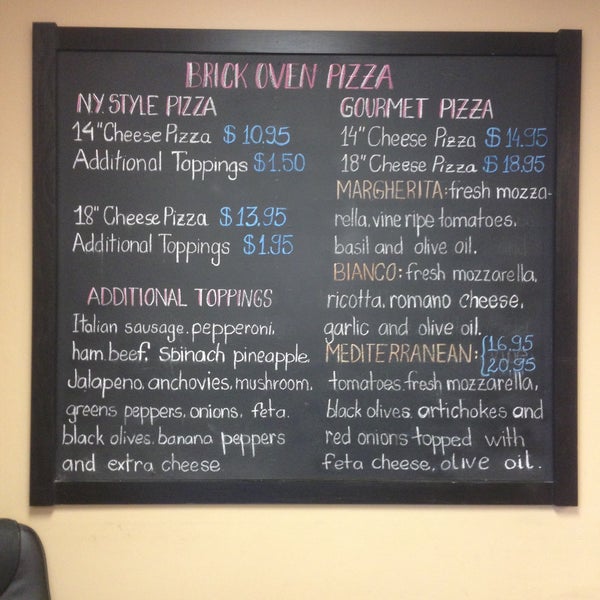 BRICK OVEN PIZZA
N.Y. STYLE PIZZA
14" Cheese Pizza $10.95
Additional Toppings $1.50
18" Cheese Pizza $13.95
Additional Toppings $1.95
ADDITIONAL TOPPINGS
Italian sausage, pepperoni,
ham, beef, sbinach pineapple,
Jalapeno, anchovies, mushroom,
greens peppers, onions, feta,
black olives, banana peppers
and extra cheese
GOURMET PIZZA
14" Cheese Pizza $14.95
18" Cheese Pizza $18.95
MARGHERITA: fresh mozza-
rella, vine ripe tomatoes,
basil and olive oil.
BIANCO: fresh mozzarella,
ricotta, romano cheese,
garlic and olive oil.
MEDITERRANEAN: {16.95
20.95
tomatoes, fresh mozzarella,
black olives, artichokes and
red onions topped with
feta cheese, olive oil.